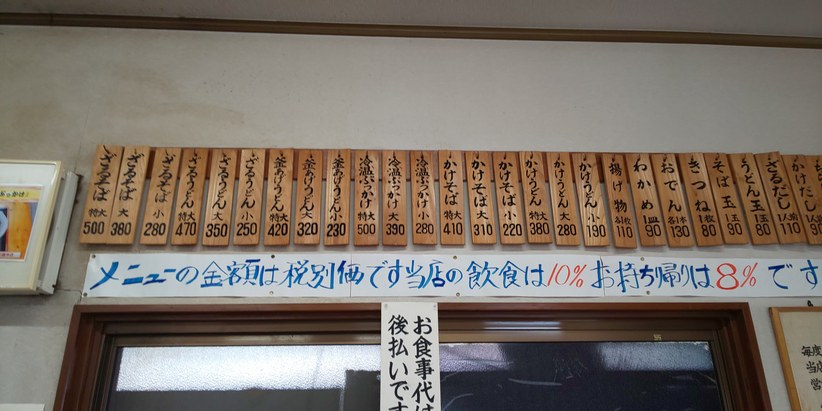 ざるそば 特大 500
ざるそば 大 380
ざるそば 小 280
ざるうどん 特大 470
ざるうどん 大 350
ざるうどん 小 250
釜あげうどん 特大 420
釜あげうどん 大 320
釜あげうどん 小 230
冷温ぶっかけ 特大 500
冷温ぶっかけ 大 390
冷温ぶっかけ 小 280
かけそば 特大 410
かけそば 大 310
かけそば 小 220
かけうどん 特大 380
かけうどん 大 280
かけうどん 小 190
揚げ物 各1枚 110
わかめ 1皿 90
おでん 各1本 130
きつね 1枚 80
そば玉 1玉 90
うどん玉 1玉 80
ざるだし 1人前 110
かけだし 90
メニューの金額は税別価です当店の飲食は10%お持ち帰りは8%です
お食事代は
後払いです
毎度
当店
営